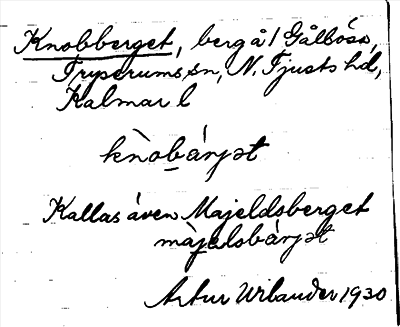 Knobberget, berg å/ Gålbosö,
Tryserums sn, N. Tjusts hd,
Kalmar l
knòbárjət
Kallas även Majeldsberget
màjəlsbárjət
Artur Urbander 1930